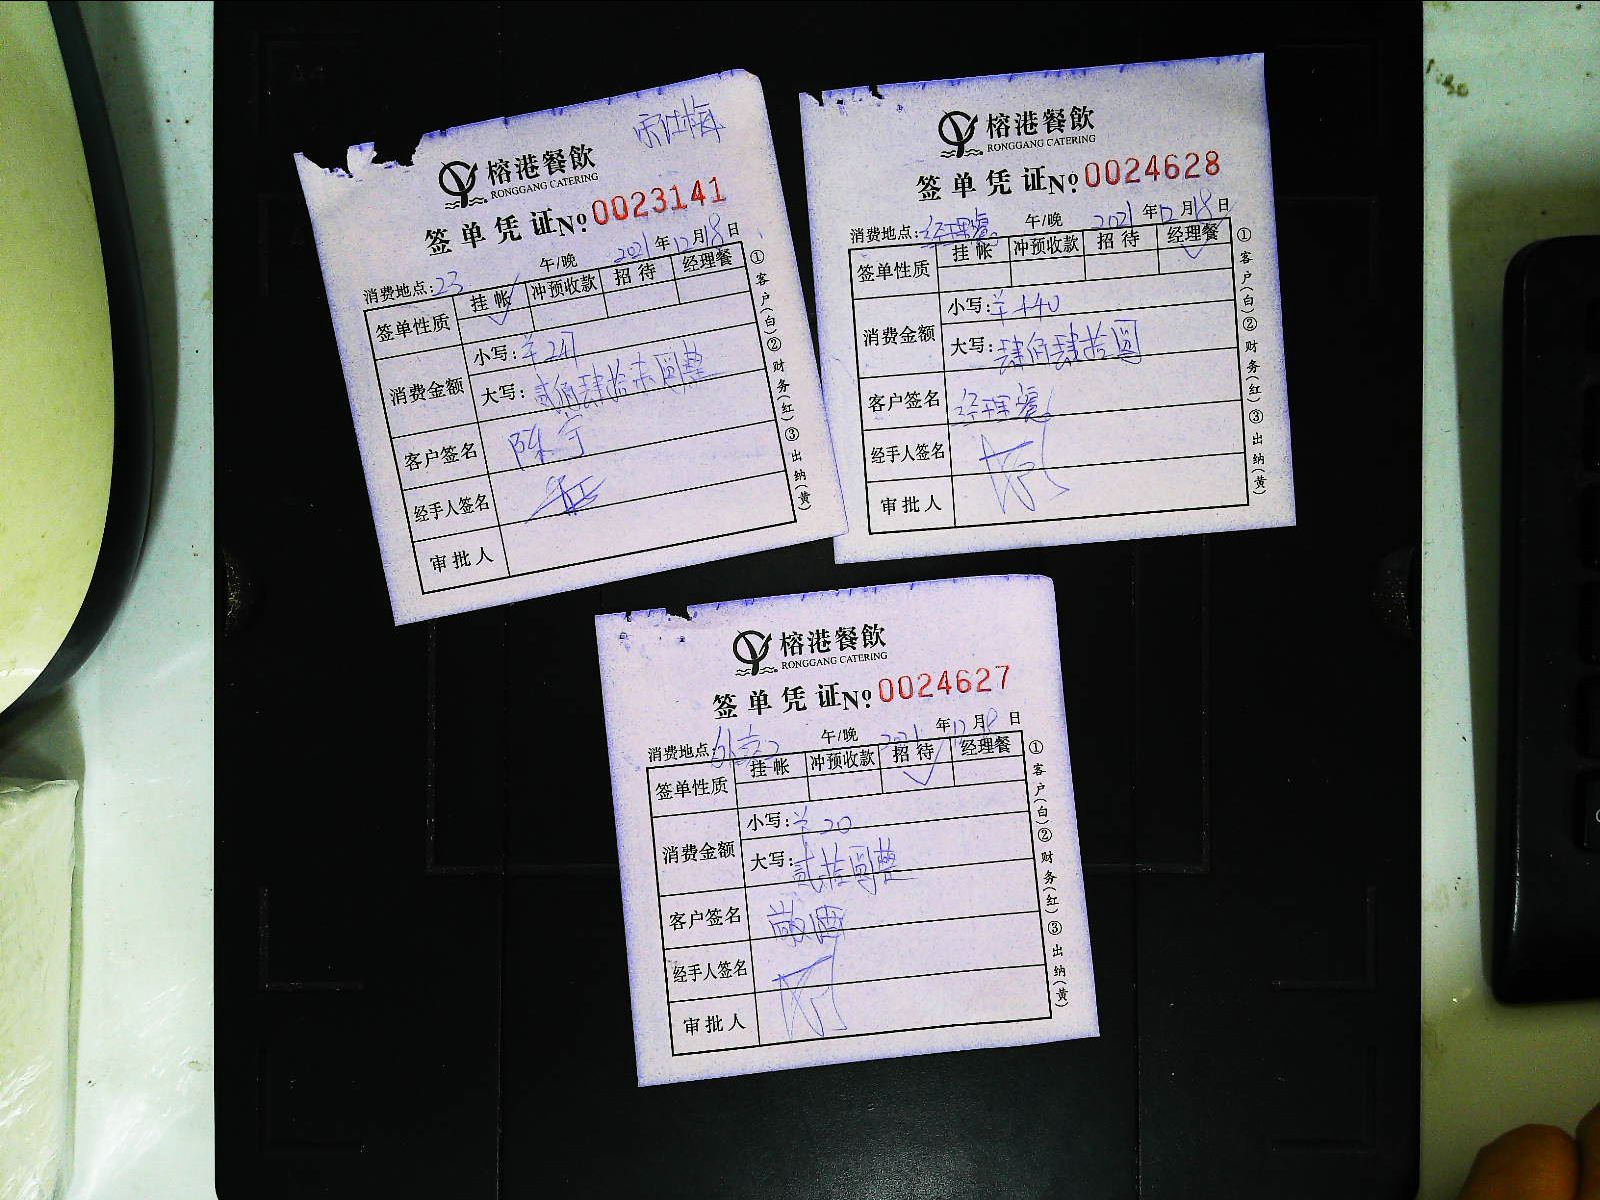 宋仕梅
榕港餐飲
RONGGANG CATERING
签单凭证 №0023141
消费地点:23 午/晚 2021年12月18日
签单性质 挂帐 冲预收款 招待 经理餐
✓
消费金额 小写:¥247
大写:贰佰肆拾柒圆整
客户签名 陈宇
经手人签名
审批人
①客户(白)②财务(红)③出纳(黄)
榕港餐飲
RONGGANG CATERING
签单凭证 №0024628
消费地点:经理餐 午/晚 2021年12月18日
签单性质 挂帐 冲预收款 招待 经理餐
✓
消费金额 小写:¥440
大写:肆佰肆拾圆
客户签名 经理餐
经手人签名
审批人
①客户(白)②财务(红)③出纳(黄)
榕港餐飲
RONGGANG CATERING
签单凭证 №0024627
消费地点: 午/晚 2021年12月18日
签单性质 挂帐 冲预收款 招待 经理餐
✓
消费金额 小写:¥20
大写:贰拾圆整
客户签名
经手人签名
审批人
①客户(白)②财务(红)③出纳(黄)